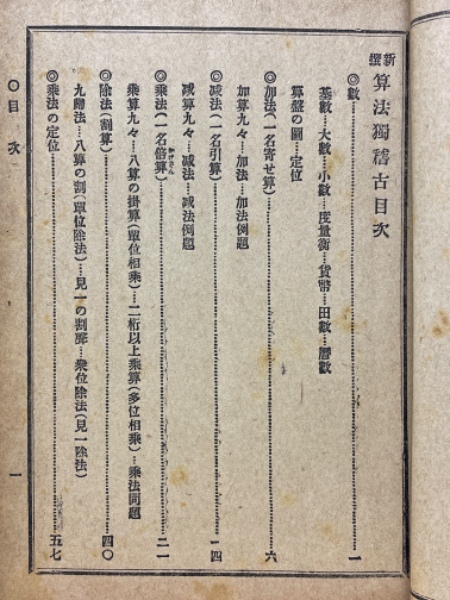 新撰 算法獨稽古目次
◎數……一
基數…大數…小數…度量衡…貨幣…田數…曆數
算盤の圖…定位
◎加法(一名寄せ算)……六
加算九々…加法…加法例題
◎减法(一名引算)……一四
减算九々…减法…减法例題
◎乘法(一名倍算)……二一
かけざん
乘算九々…八算の掛算(單位相乘)…二桁以上乘算(多位相乘)…乘法問題
◎除法(割算)……四〇
九歸法…八算の割(單位除法)…見一の割算…衆位除法(見一除法)
◎乘法の定位……五七
〇目次
一